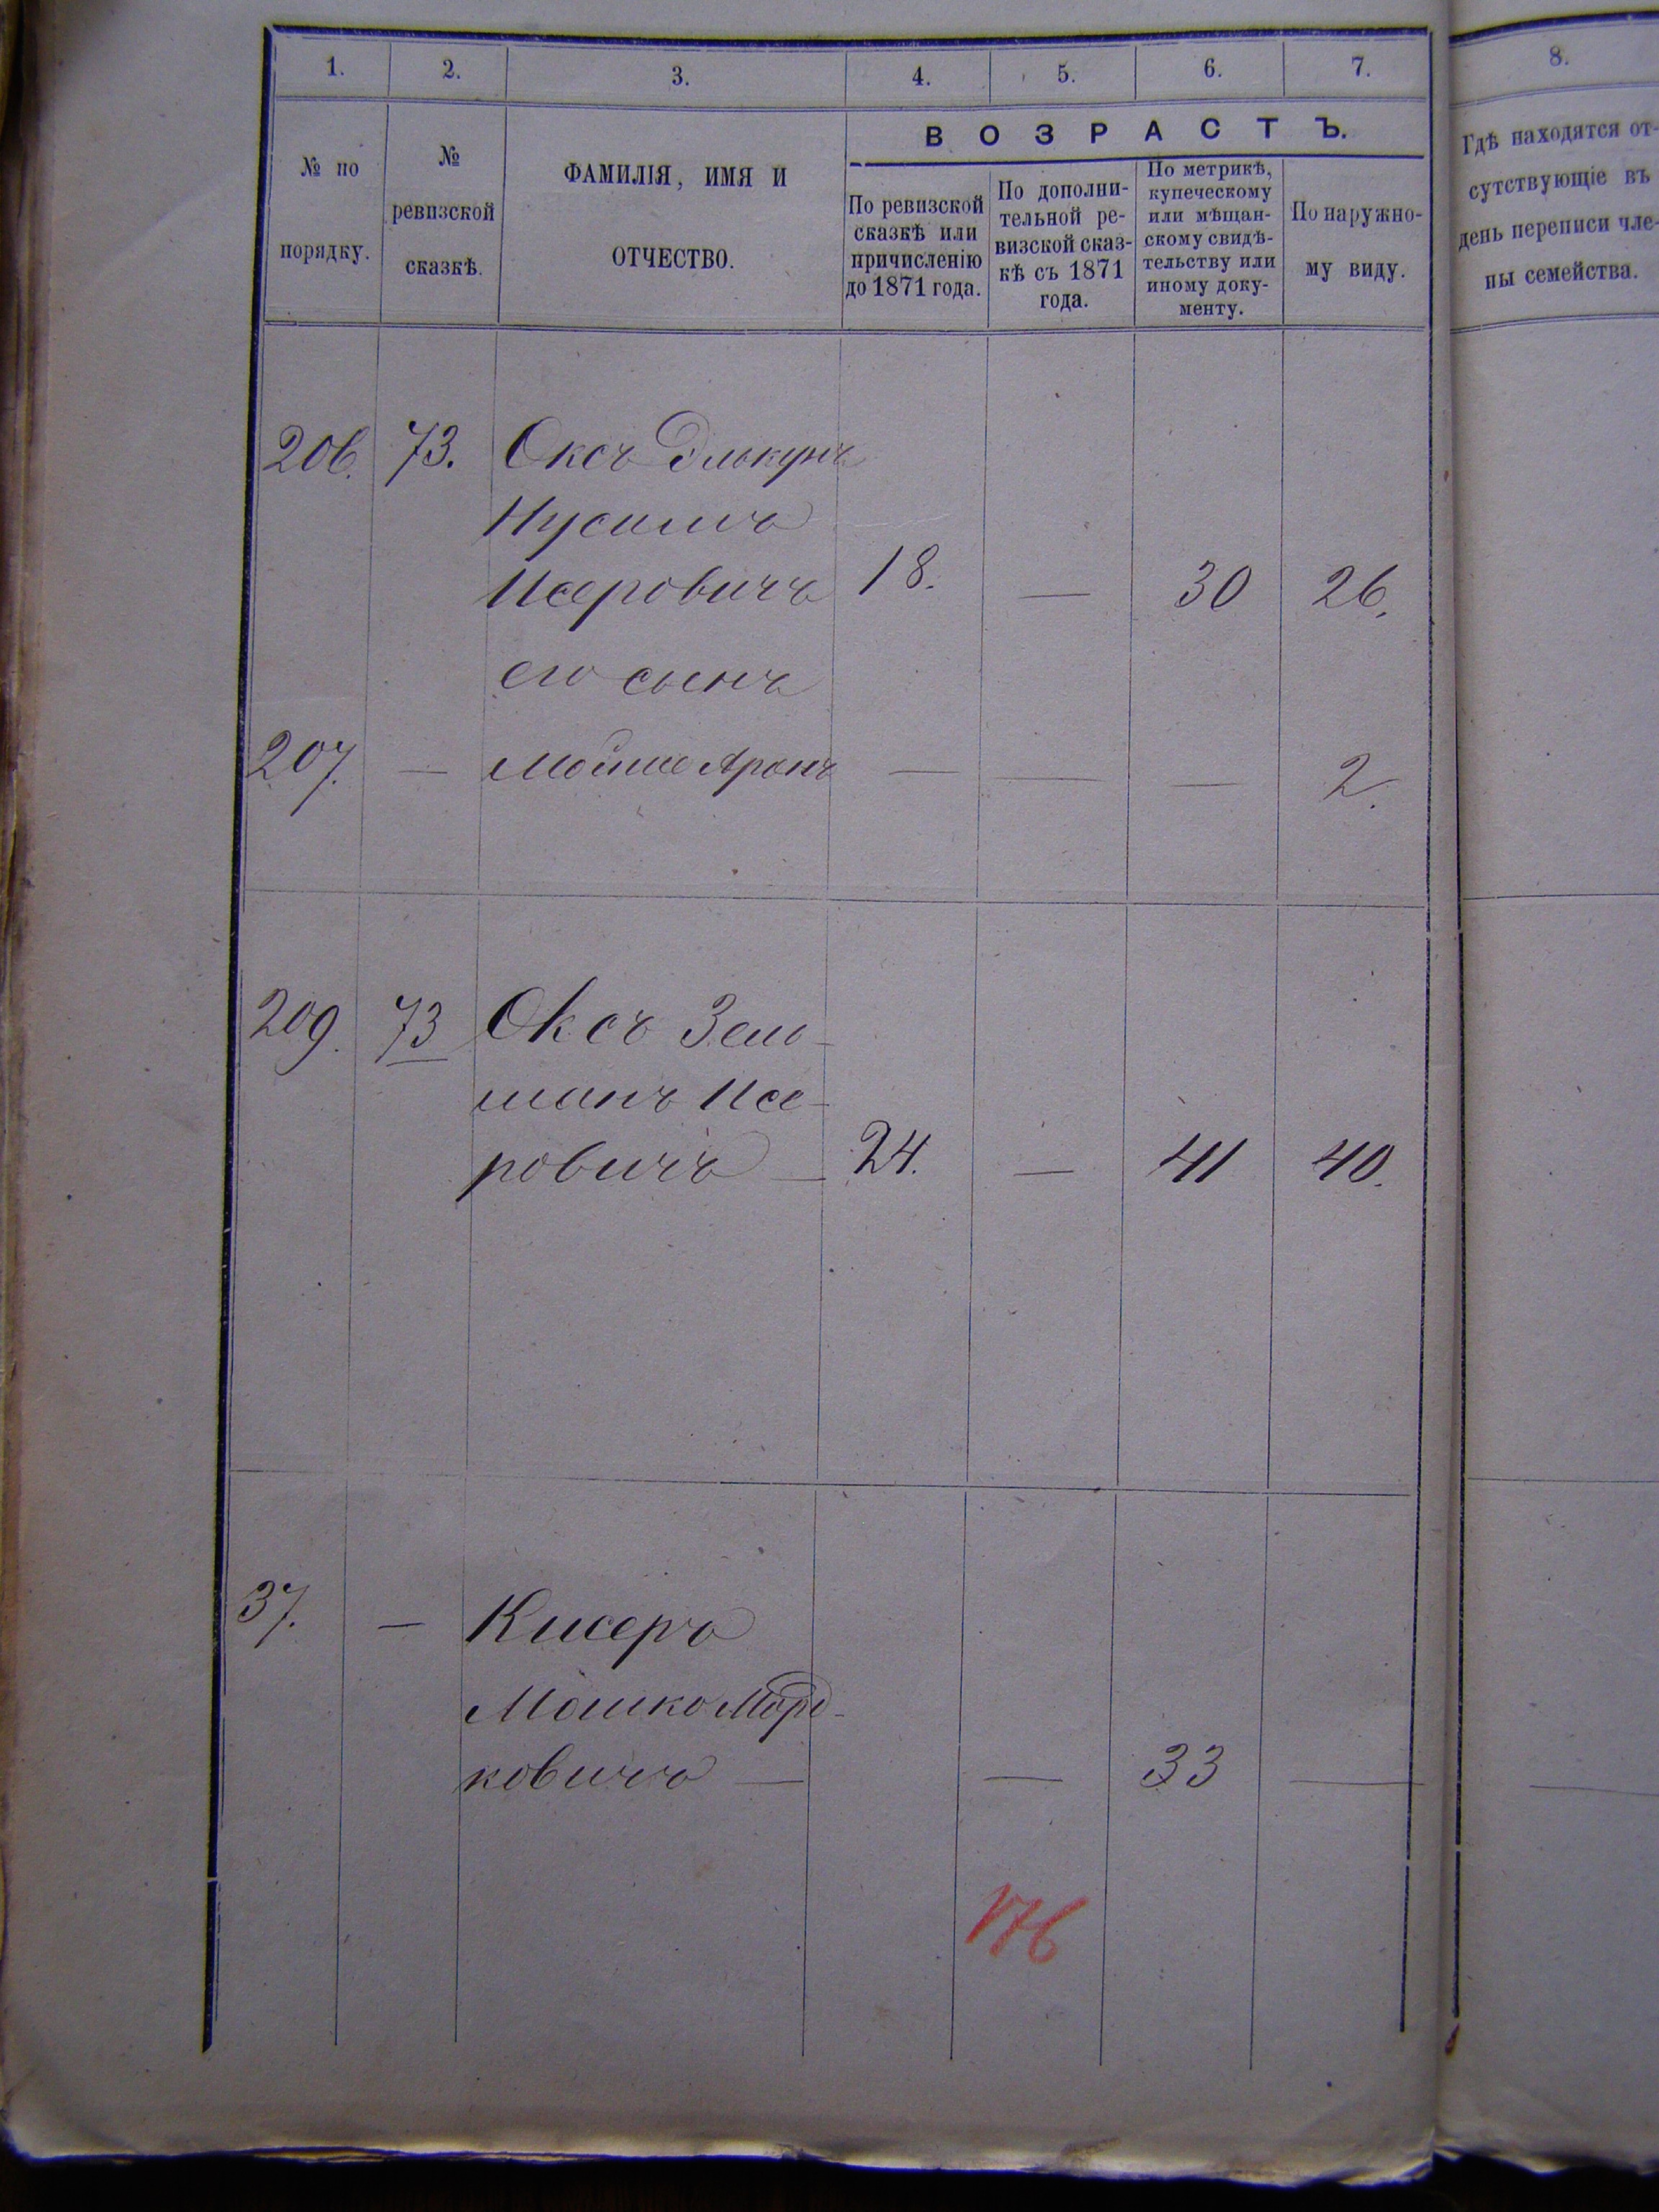 1. 2. 3. 4. 5. 6. 7. 8.
№ по порядку.
№ ревизской сказкѣ.
ФАМИЛІЯ, ИМЯ И ОТЧЕСТВО.
ВОЗРАСТЪ.
По ревизской сказкѣ или причисленію до 1871 года.
По дополни-
тельной ре-
визской сказ-
кѣ съ 1871
года.
По метрикѣ,
купеческому
или мѣщан-
скому свидѣ-
тельству или
иному доку-
менту.
По наружно-
му виду.
Гдѣ находятся от-
сутствующіе въ
день переписи чле-
ны семейства.
206. 73. Оксъ Элькунъ
Нусимъ
Исеровичъ 18. — 30 26.
его сынъ
207. — Мойше Аронъ — — — 2.
209. 73 Оксъ Зель-
манъ Исе-
ровичъ — 24. — 41 40.
37. — Кисеръ
Мошко Морд-
ковичъ — — 33 —
176